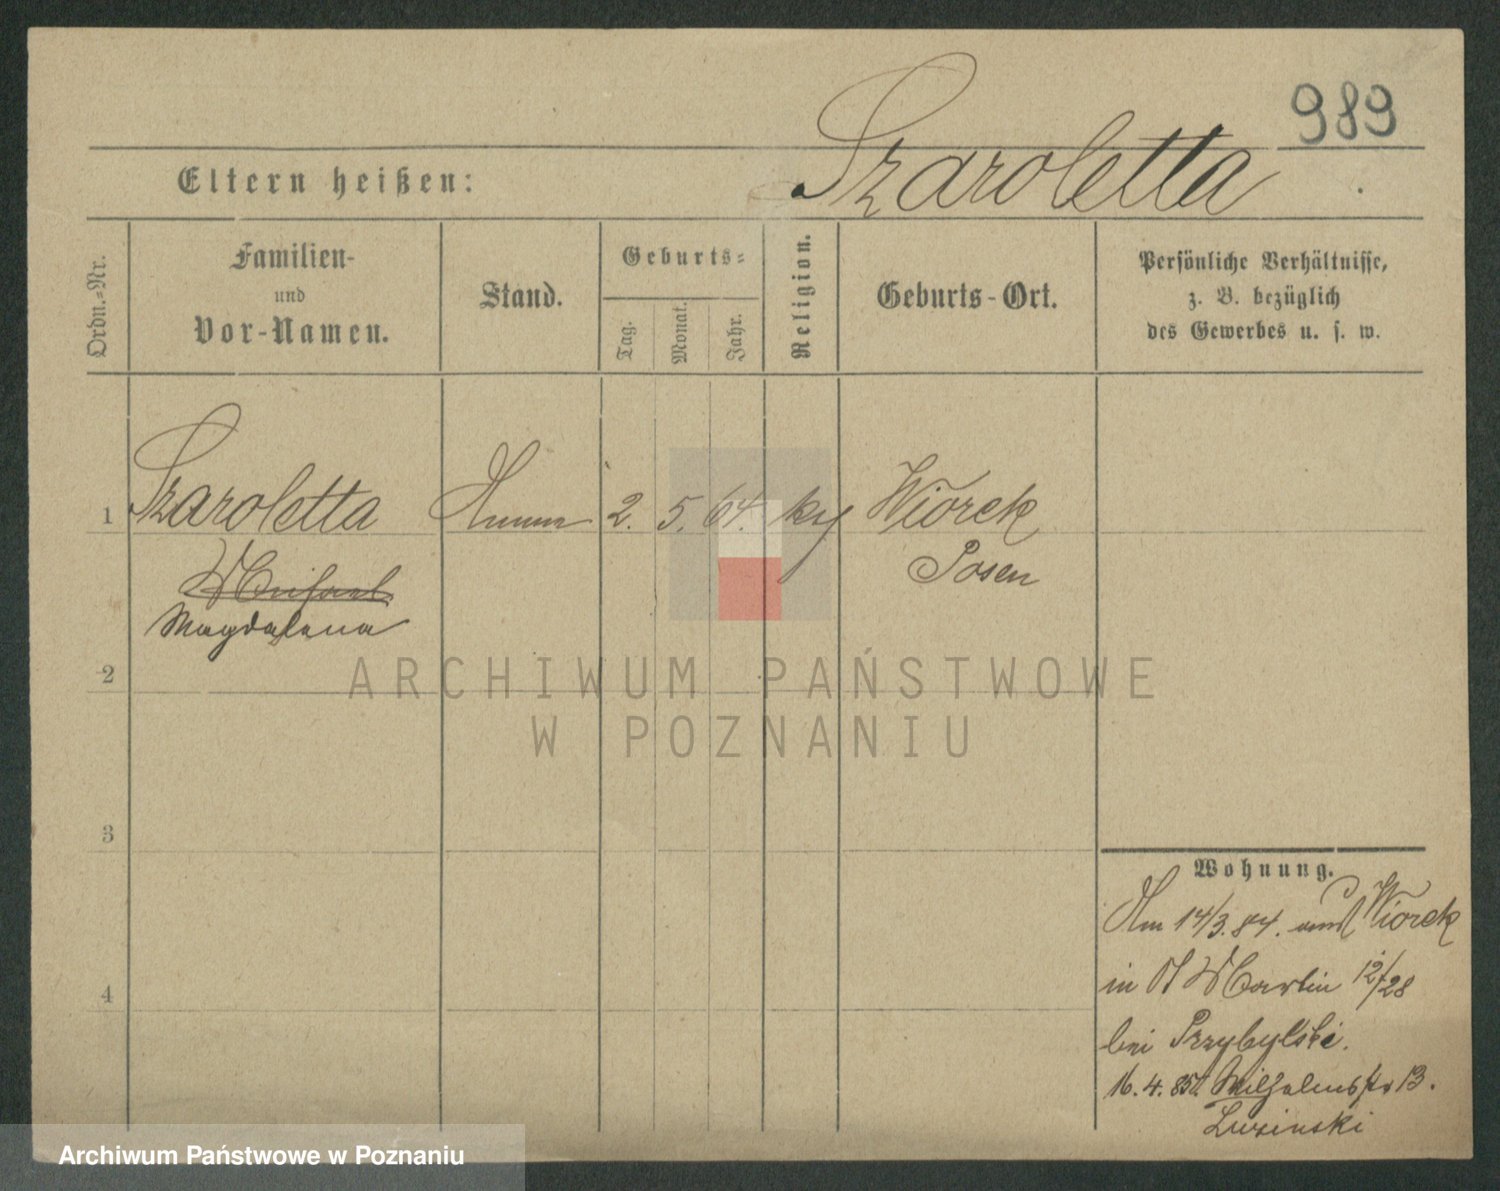 989
Szaroletta
Eltern heißen:
Ordn.-Nr.
Familien-
und
Vor-Namen.
Stand.
Geburts-
Tag.
Monat.
Jahr.
Religion.
Geburts-Ort.
Persönliche Verhältnisse,
z. B. bezüglich
des Gewerbes u. s. w.
1
Szaroletta
2. 5. 64.
Wiorek
Posen
Magdalena
2
3
4
Wohnung.
Am 14/3. 84. aus Wiorek
in St Martin 12/28
bei Przybylski.
16. 4. 85 Wilhelmstr 13.
Luzinski
ARCHIWUM PAŃSTWOWE
W POZNANIU
Archiwum Państwowe w Poznaniu